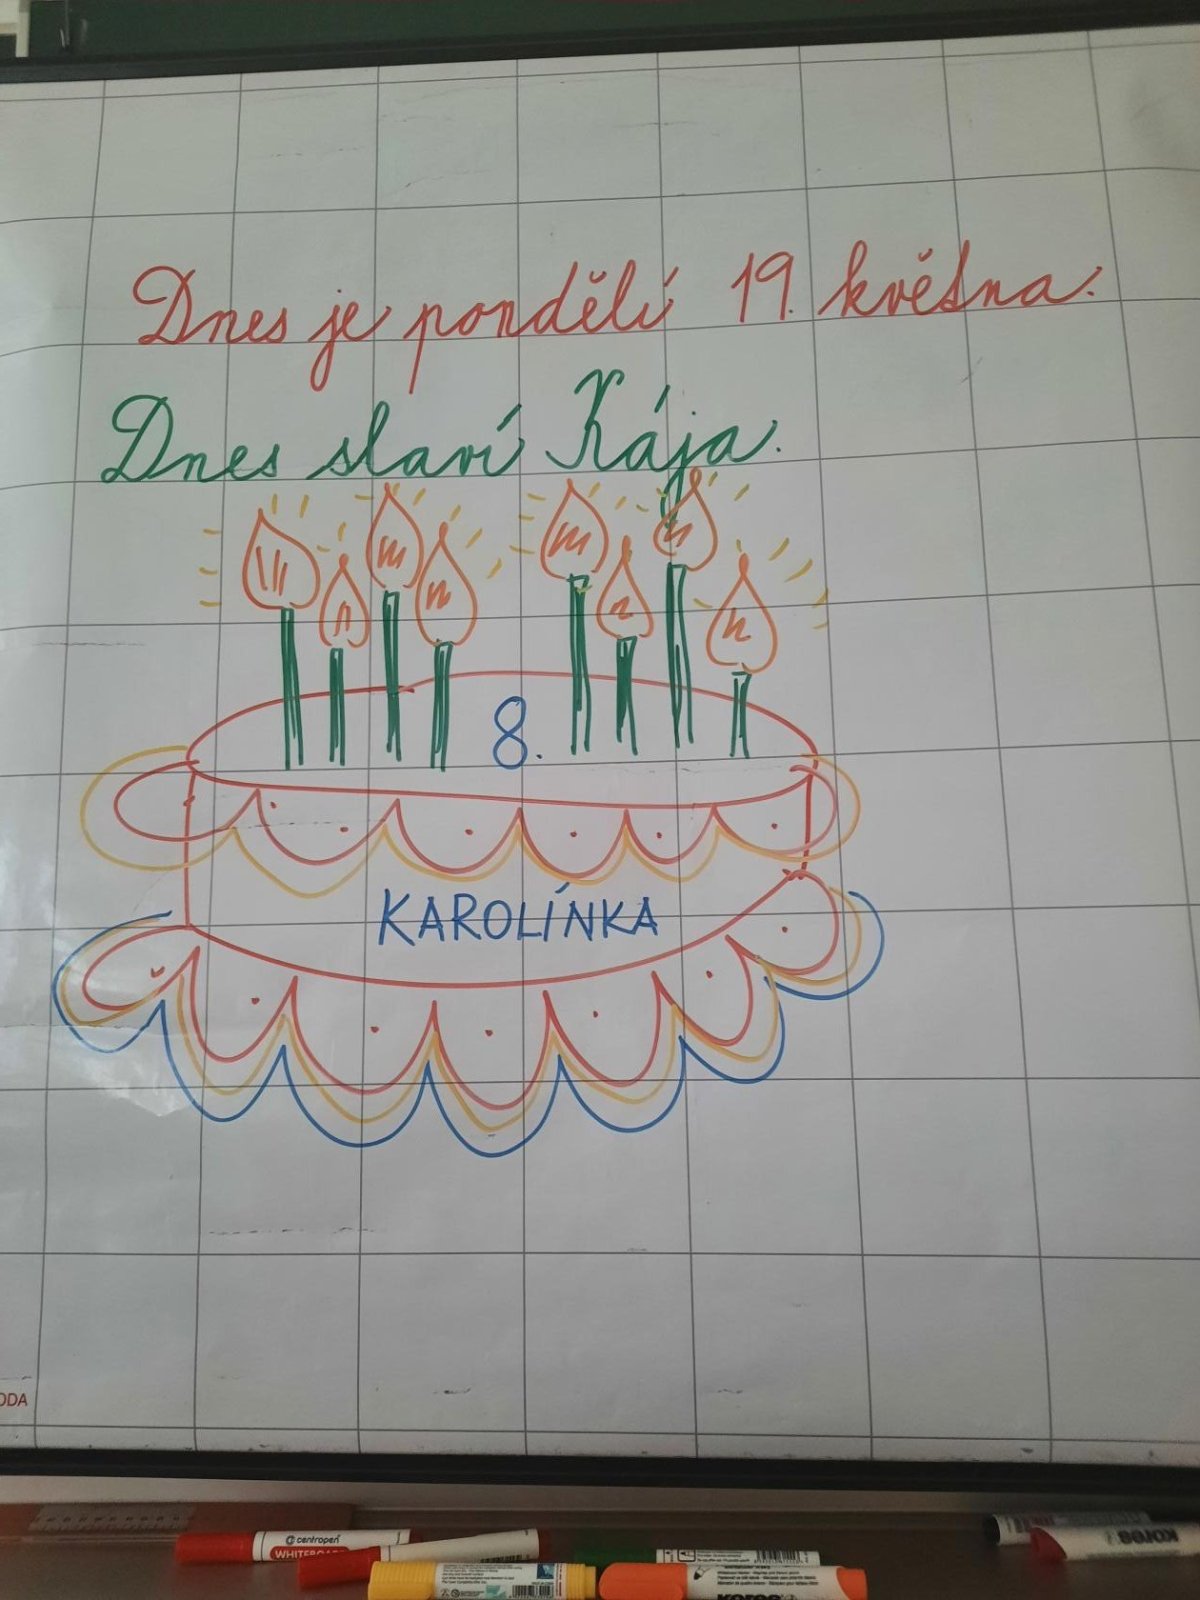 Dnes je pondělí 19. května.
Dnes slaví Kája.
8.
KAROLÍNKA
ODA
centropen
WHITEBOARD
kores
kores